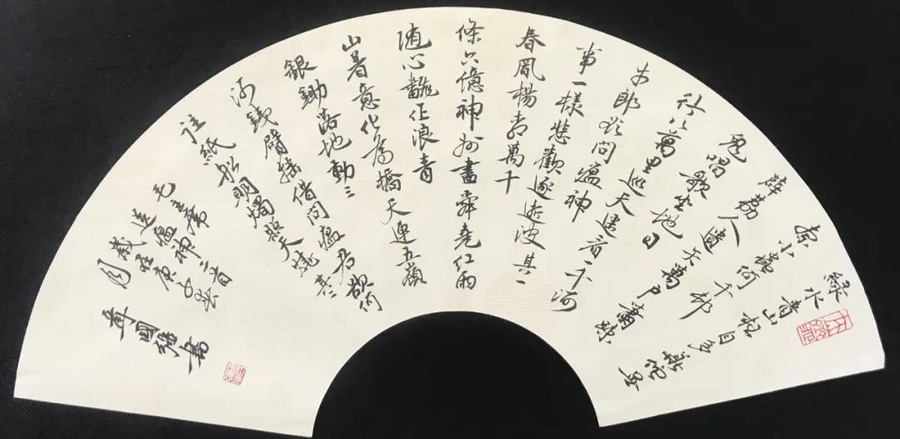 綠水青山枉自多華佗無
奈小蟲何千村
薜荔人遺矢萬戶蕭疏
鬼唱歌坐地日
行八萬里巡天遙看一千河
牛郎欲問瘟神
事一樣悲歡逐逝波其一
春風楊柳萬千
條六億神州盡舜堯紅雨
隨心翻作浪青
山着意化為橋天連五嶺
銀鋤落地動三
河鐵臂搖借問瘟君欲何
往紙船明燭照天燒其二
毛主席
送瘟神二首
歲在庚子
章國強書